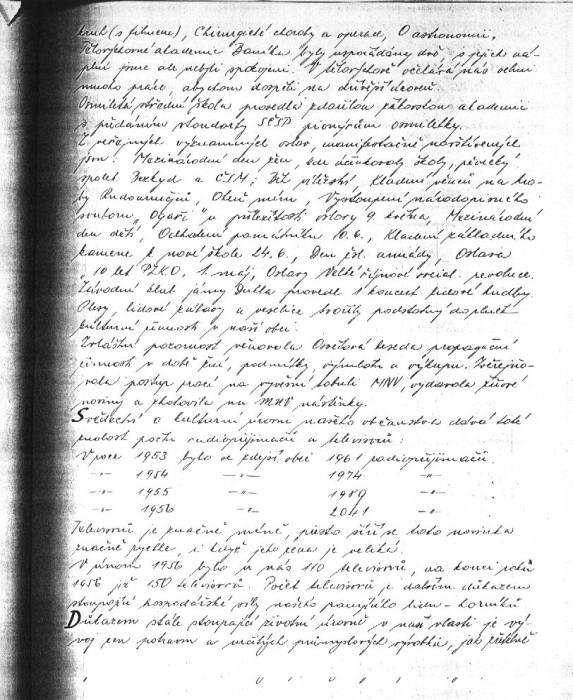 kruh (s filmem), Chirurgické choroby a operace, O astronomii,
Tělovýchovné akademie Baníka byly uspořádány dvě, s jejich ná-
plní jsme ale nebyli spokojeni. V tělovýchově očekává nás velmi
mnoho práce, abychom dospěli na dřívější úroveň.
Osmiletá střední škola provedla zdařilou tělovýchov. akademii
s předáním standarty SČSP pionýrům osmiletky.
Z veřejných významných oslav, manifestačně navštívených
jsou: Mezinárodní den žen, kde účinkovaly školy, pěvecký
spolek Bezkyd a ČSM; Bit vítězství, Kladení věnců na hro-
by Rudoarmějců, Oheň míru, Vystoupení národopisného
souboru „Ogaři" u příležitosti oslavy 9. května, Mezinárodní
den dětí, Odhalení památníku 10.6., Kladení základního
kamene k nové škole 24.6., Den čsl. armády, Oslava
„10 let PZKO. 1. máj, Oslavy Velké říjnové social. revoluce.
Závodní klub jámy Dukla provedl 1 koncert lidové hudby.
Plesy, lidové zábavy a veselice tvořily podstatný doplněk
kulturní činnosti v naší obci.
Zvláštní pozornost věnovala Osvětová beseda propagační
činnosti v době žní, podmítky, výmlatu a výkupu. Zveřejňo-
vala postup prací na vývěsní tabuli MNV, vydávala žňové
noviny a zhotovila na MNV nástěnky.
Svědectví o kulturní úrovni našeho občanstva dává také
znalost počtu radiopřijímačů a televisorů:
V roce 1953 bylo ve zdejší obci 1961 radiopřijímačů
-"- 1954 -"- 1974 -"-
-"- 1955 -"- 1989 -"-
-"- 1956 -"- 2041 -"-
Televisorů je značně méně, přesto šíří se tato novinka
značně rychle, i když jeho cena je veliká.
V únoru 1956 bylo u nás 110 televisorů, na konci roku
1956 již 150 televisorů. Počet televisorů je dalším důkazem
stoupající hospodářské síly našeho pracujícího lidu - horníků
Důkazem stále stoupající životní úrovně v naší vlasti je vý-
voj cen potravin a určitých průmyslových výrobků, jak zřetelně